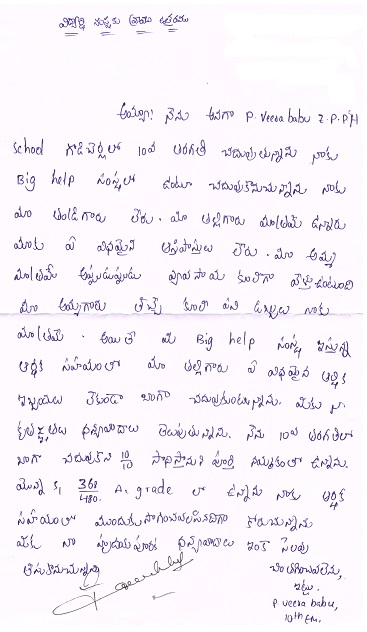 విద్యార్థి సంస్థకు వ్రాయు ఉత్తరము
అయ్యా! నేను అనగా P. Veera babu Z.P.P.H
School గాడిచెర్లలో 10వ తరగతి చదువుతున్నాను నాకు
Big help సంస్థలో ఉంటూ చదువుకొనుచున్నాను నాకు
మా తండ్రిగారు లేరు. మా తల్లిగారు మాత్రమే ఉన్నారు
మాకు ఏ విధమైన ఆస్తిపాస్తులు లేరు. మా అమ్మ
మాత్రమే అప్పుడప్పుడు వ్యవసాయ కూలిగా వెళ్తుఉంటుంది
మా అమ్మగారు తెచ్చే కూలి పని డబ్బులు నాకు
మాత్రమే. అయితే మీ Big help సంస్థ ఇస్తున్న
ఆర్థిక సహాయంలో మా తల్లిగారు ఏ విధమైన ఆర్థిక
ఇబ్బందులు లేకుండా బాగా చదువుకుంటున్నాను. మీకు నా
కృతజ్ఞతలు ధన్యవాదాలు తెలుపుతున్నాను. నేను 10వ తరగతిలో
బాగా చదువుకొని 10/10 సాధిస్తానని పూర్తి నమ్మకంలో ఉన్నాను.
మొన్న 360/480. A. grade లో ఉన్నాను నాకు ఆర్థిక
సహాయంలో ముందుకు సాగించవలసినదిగా కోరుచున్నాను
మీకు నా హృదయపూర్వక ధన్యవాదాలు ఇంక సెలవు
తీసుకొనుచున్నాను
ఇట్లు,
P veera babu,
10th